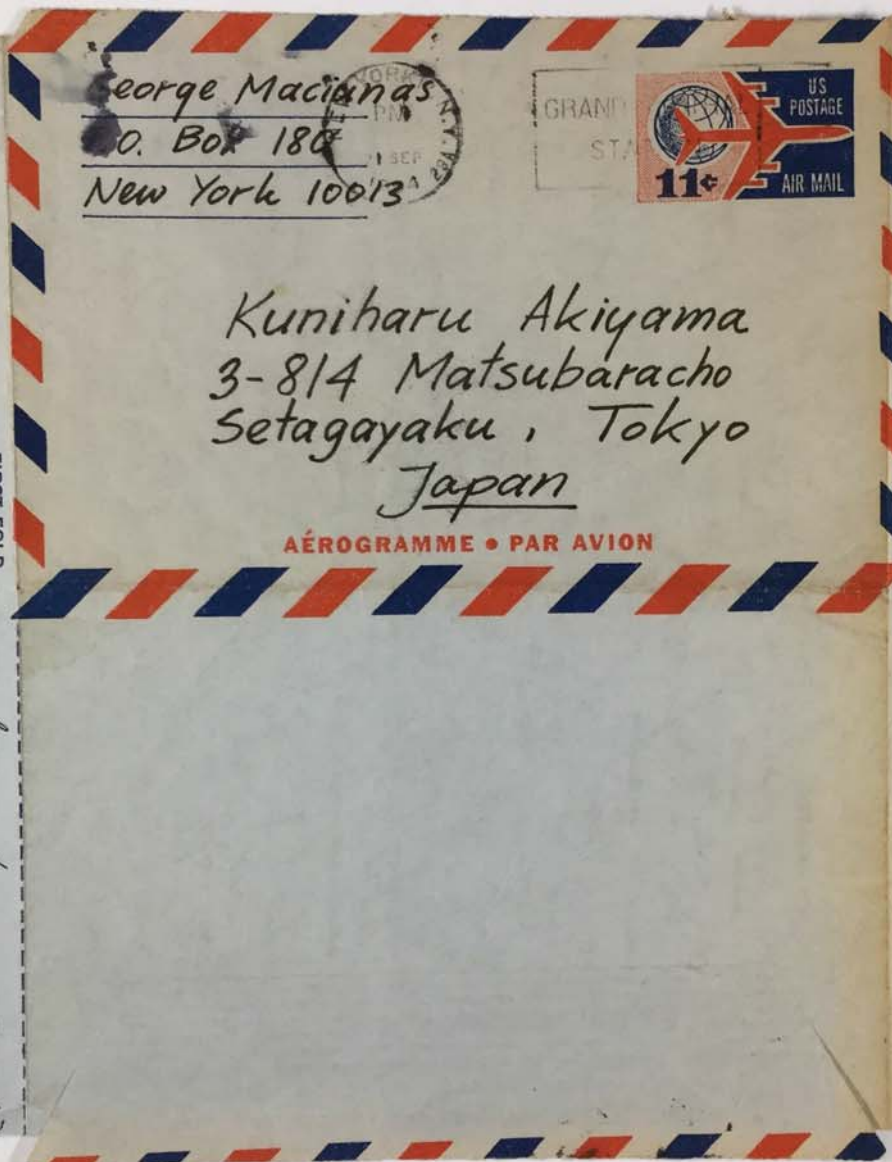 George Maciunas
P.O. Box 180
New York 10013
NEW YORK, N.Y.
PM
SEP
GRAND
STA
US
POSTAGE
11¢
AIR MAIL
Kuniharu Akiyama
3-814 Matsubaracho
Setagayaku, Tokyo
Japan
AÉROGRAMME • PAR AVION